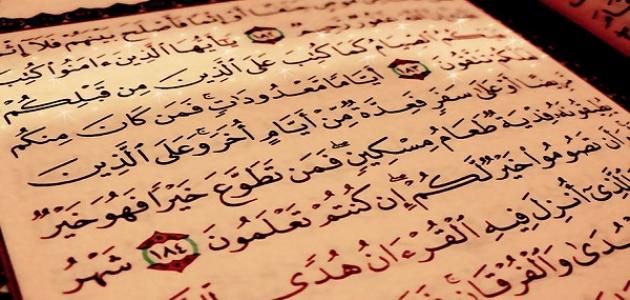 أَوْ إِثْمًا فَأَصْلَحَ بَيْنَهُمْ فَلَآ إِثْ
١٨٢ يَٰٓأَيُّهَا ٱلَّذِينَ ءَامَنُوا۟ كُتِبَ
عَلَيْكُمُ ٱلصِّيَامُ كَمَا كُتِبَ عَلَى ٱلَّذِينَ مِن قَبْلِكُمْ
لَعَلَّكُمْ تَتَّقُونَ ١٨٣ أَيَّامًا مَّعْدُودَٰتٍ ۚ فَمَن كَانَ مِنكُم
مَّرِيضًا أَوْ عَلَىٰ سَفَرٍ فَعِدَّةٌ مِّنْ أَيَّامٍ أُخَرَ ۚ وَعَلَى ٱلَّذِينَ
يُطِيقُونَهُۥ فِدْيَةٌ طَعَامُ مِسْكِينٍ ۖ فَمَن تَطَوَّعَ خَيْرًا فَهُوَ خَيْرٌ
وَأَن تَصُومُوا۟ خَيْرٌ لَّكُمْ ۖ إِن كُنتُمْ تَعْلَمُونَ ١٨٤ شَهْرُ
ٱلَّذِىٓ أُنزِلَ فِيهِ ٱلْقُرْءَانُ هُدًى
ٱلْهُدَىٰ وَٱلْفُرْقَانِ ۚ